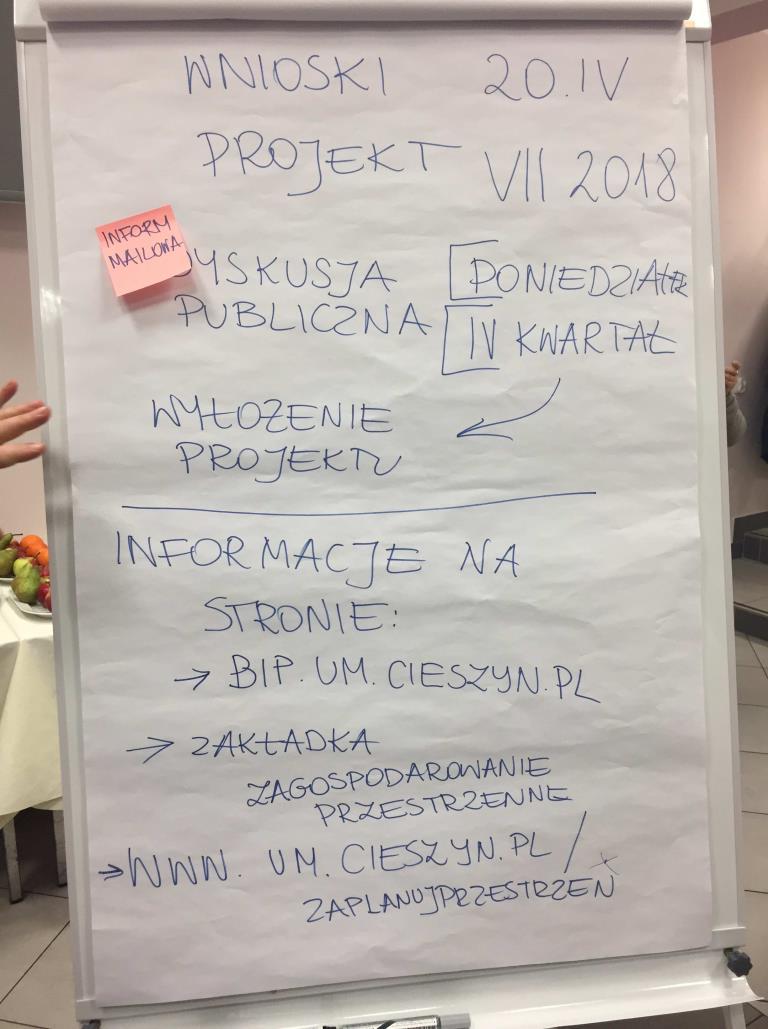 WNIOSKI 20.IV
PROJEKT VII 2018
INFORM
MAILOWA
DYSKUSJA PONIEDZIAŁEK
PUBLICZNA IV KWARTAŁ
WYŁOŻENIE
PROJEKTU
INFORMACJE NA
STRONIE:
→ BIP.UM.CIESZYN.PL
→ ZAKŁADKA
ZAGOSPODAROWANIE
PRZESTRZENNE
→ WWW.UM.CIESZYN.PL/
ZAPLANUJPRZESTRZEN